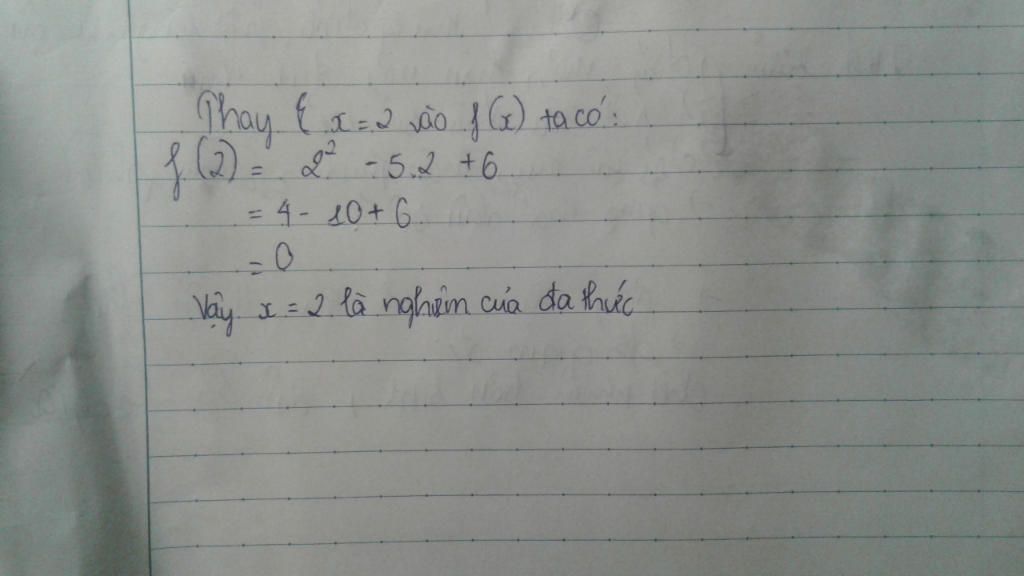 Thay x = 2 vào f(x) ta có:
f(2) = 2² - 5.2 + 6
= 4 - 10 + 6
= 0
Vậy x = 2 là nghiệm của đa thức